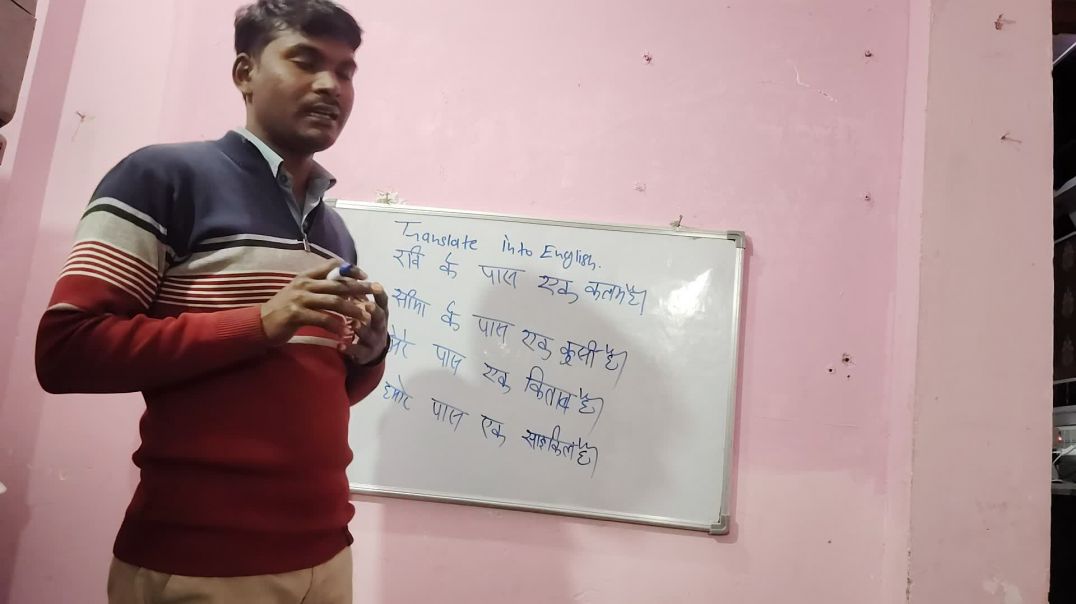 Translate into English.
रवि के पास एक कलम है।
सीमा के पास एक कुर्सी है।
मेरे पास एक किताब है।
हमारे पास एक साइकिल है।